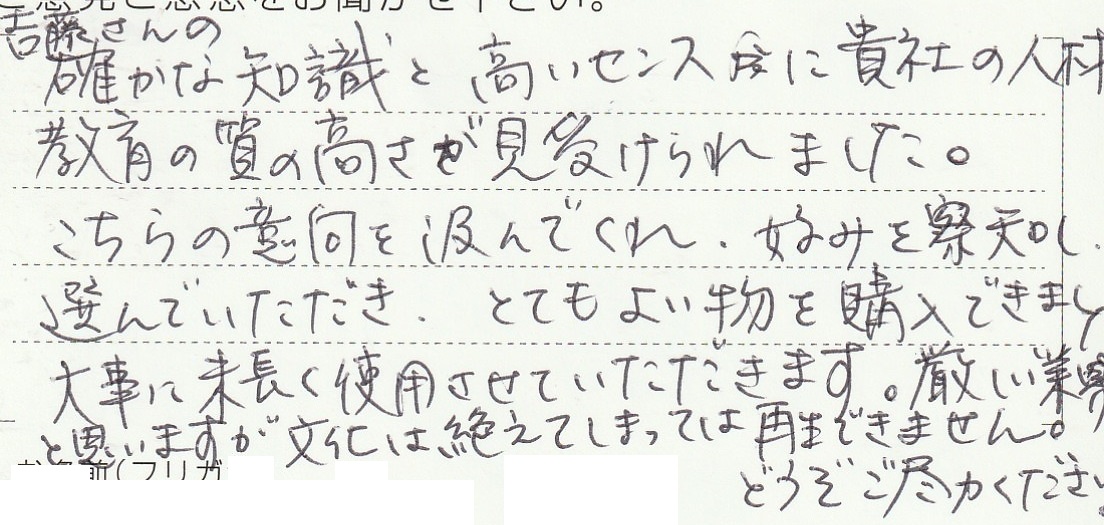 ご意見ご感想をお聞かせ下さい。
吉藤さんの
確かな知識と高いセンス 度に貴社の人材
教育の質の高さが見受けられました。
こちらの意向を汲んでくれ、好みを察知し、
選んでいただき、とてもよい物を購入できまし
大事に末長く使用させていただきます。厳しい業界
と思いますが文化は絶えてしまっては再生できません。
どうぞご尽力ください。
お名前(フリガ